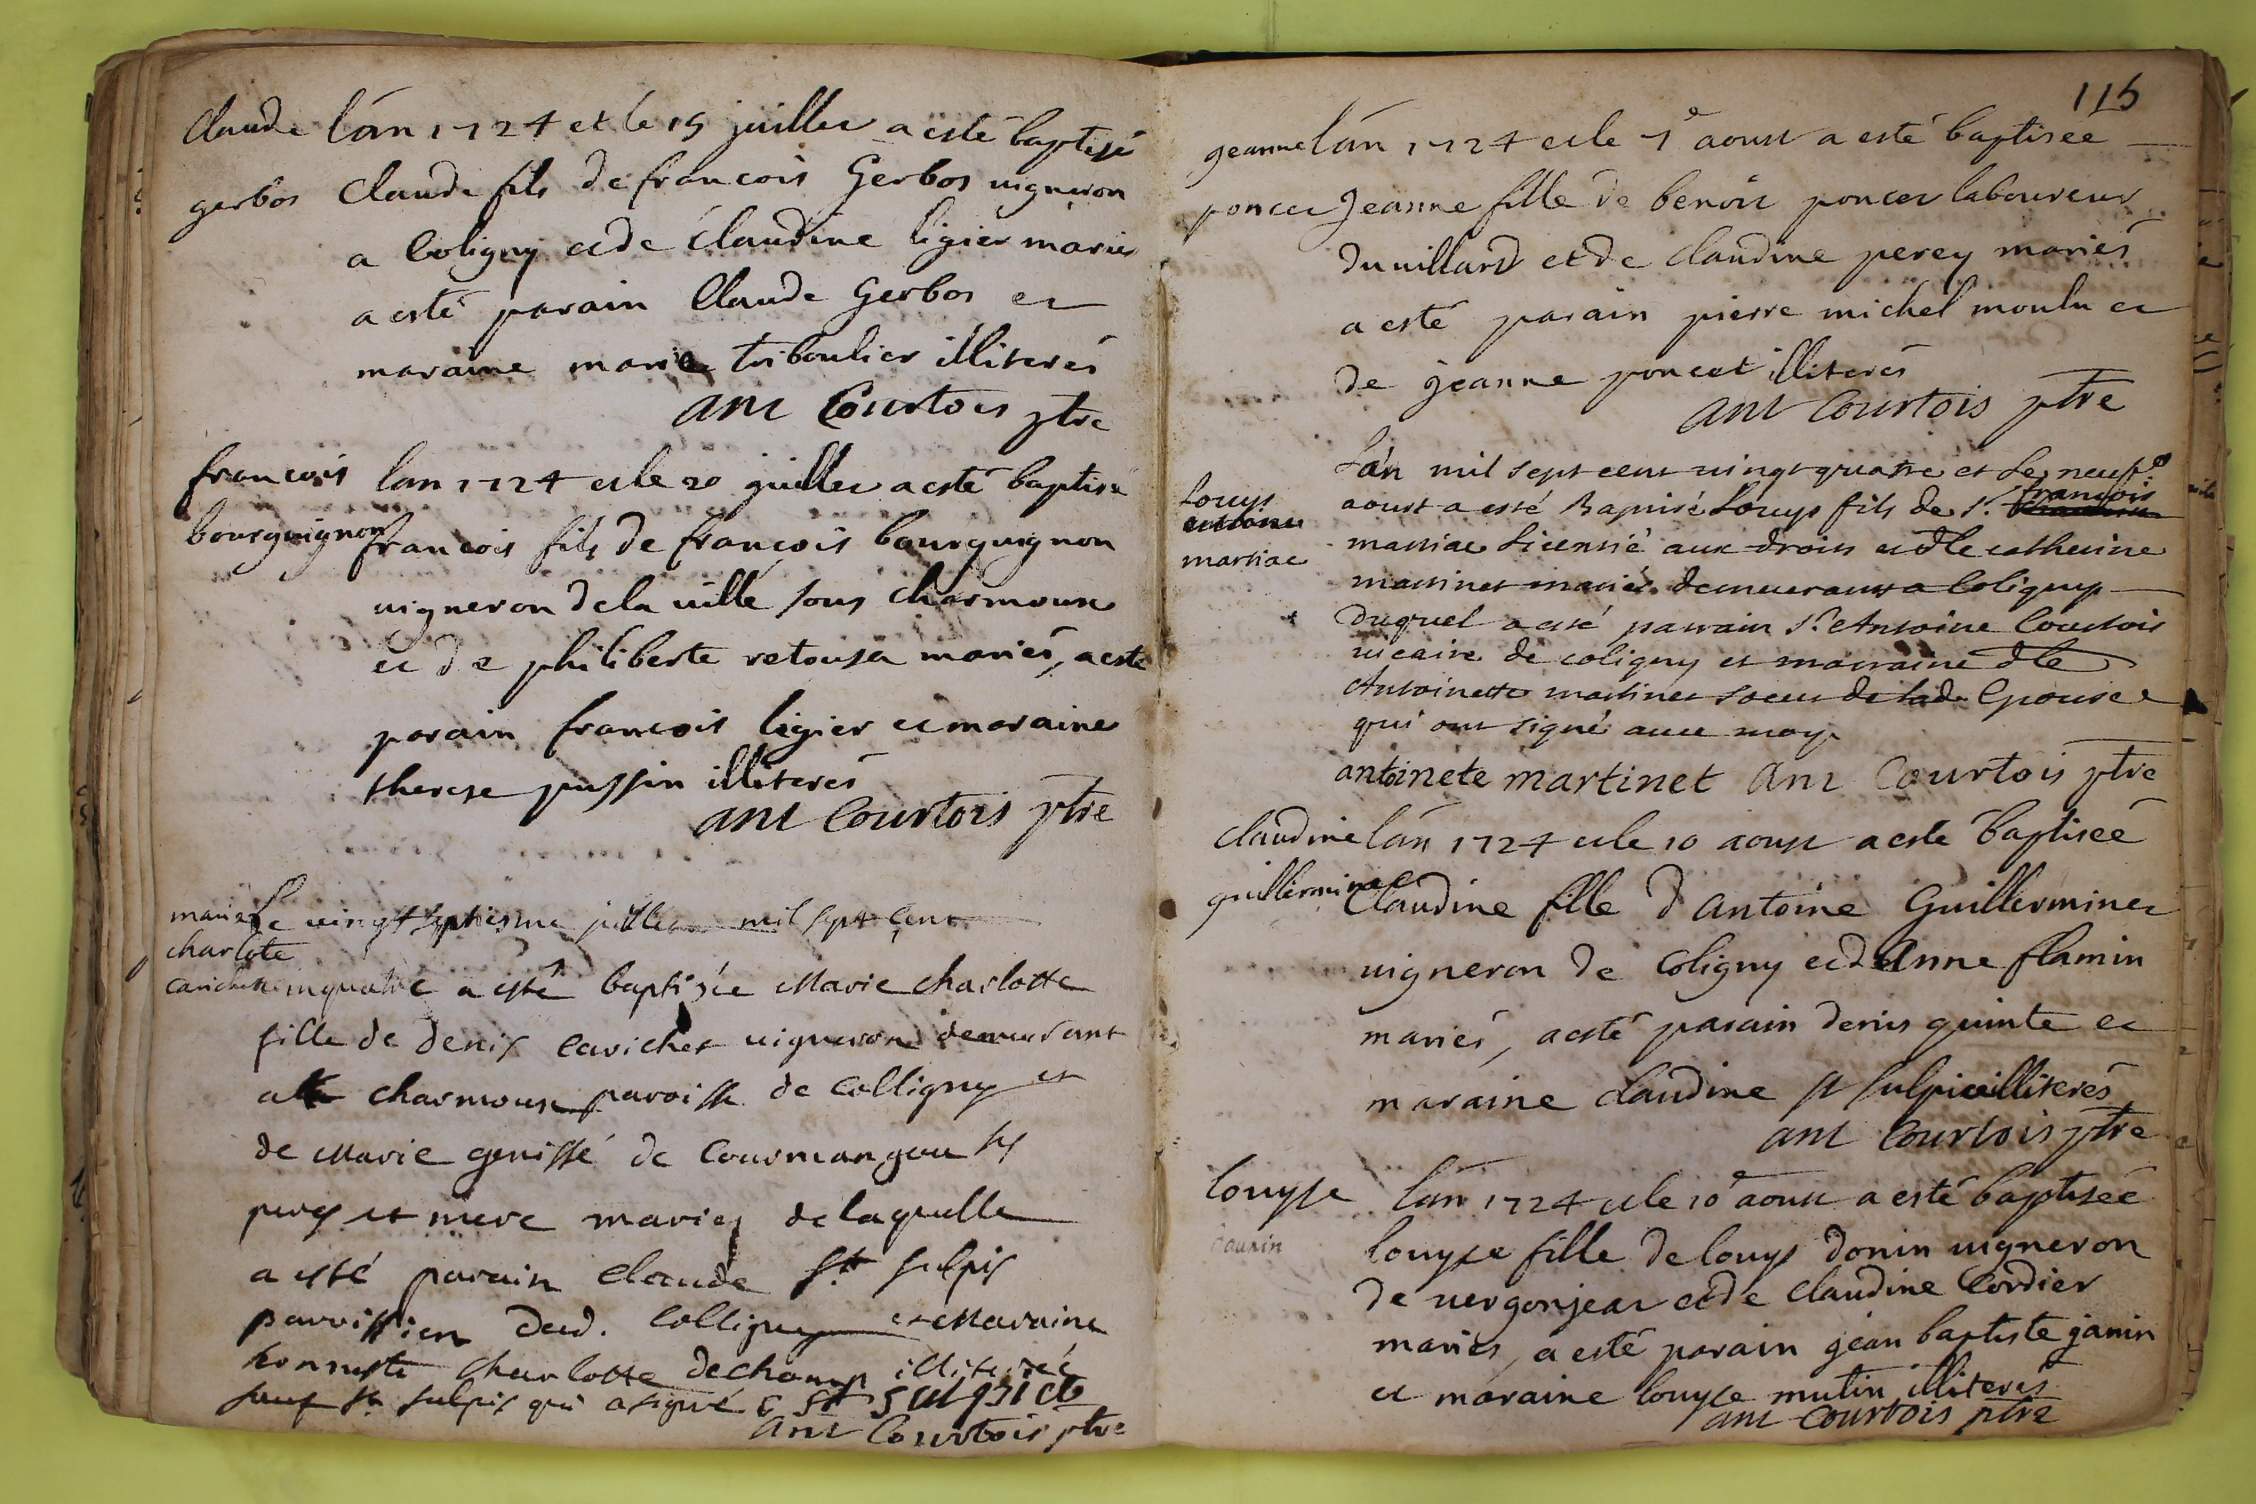 Claude
gerbos
lán 1724 et le 15 juillet a esté baptisé
Claude fils de francois Gerbos vigneron
a Coligny et de Claudine ligier mariés
a esté parain Claude Gerbos et
maraine marie triboulier illiterés
Ant Courtois ptre
francois
bourguignon
lan 1724 et le 20 juillet a esté baptisé
francois fils de françois bourguignon
vigneron de la ville sous Charmoux
et de philiberte retousa mariés, a esté
parain francois ligier et maraine
therese pussin illiterés
Ant Courtois ptre
marie
charlote
carichet
Le vingt septiesme juillet mil sept cent
vingt quatre a esté baptizée Marie Charlotte
fille de denis carichet vigneron demeurant
a Charmoux paroisse de Colligny et
de Marie genissé de Courmangou ses
peres et mere mariez de laquelle
a esté parain Claude St Sulpis
parroissien dud. Colligny et Maraine
honneste Charlotte dechamp illiterée
sauf St Sulpis qui a signé C St Sulpice
Ant Courtois ptre
115
geanne
poncet
lán 1724 et le 7e aoust a esté baptisee
Jeanne fille de benoit poncet laboureur
du villard et de Claudine perey mariés
a esté parain pierre michel moulu et
de jeanne poncet illiterés
Ant Courtois ptre
Louys
martiac
Lán mil sept cent vingt quatre et le neufe
aoust a esté Baptisé Louys fils de Sr francois
martiac Licentié aux droits et dlle catherine
martinet mariés demeurants a Coligny
duquel a esté parrain Sr Antoine Courtois
vicaire de coligny et marraine dlle
Antoinette martinet soeur de lade Epouse
qui ont signé avec moy
antoinete martinet Ant Courtois ptre
Claudine
guillerminet
lán 1724 et le 10 aoust a esté baptiseé
Claudine fille d'Antoine Guillerminet
vigneron de Coligny et d'Anne flamin
mariés, a esté parain denis quinte et
maraine Claudine St Sulpice illiterés
Ant Courtois ptre
louyse
daunin
lán 1724 et le 10e aoust a esté baptiseé
louyse fille de louys donin vigneron
de vergonjeat et de Claudine Cordier
mariés, a esté parain jean baptiste janin
et maraine louyse mutin illiterés
Ant Courtois ptre